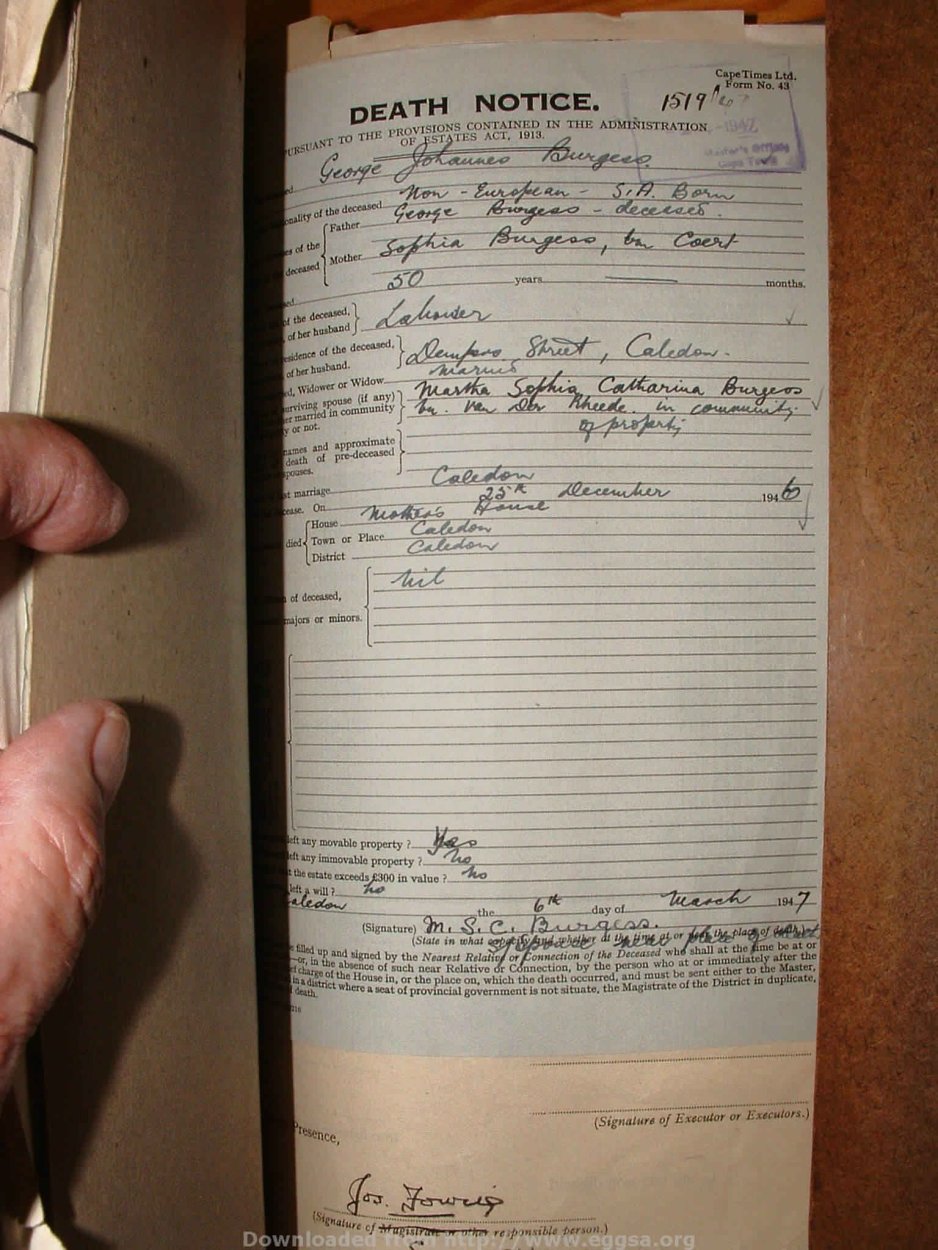 Cape Times Ltd.
Form No. 43
1519
DEATH NOTICE.
PURSUANT TO THE PROVISIONS CONTAINED IN THE ADMINISTRATION
OF ESTATES ACT, 1913.
-1947
Master's Office
Cape Town
George Johannes Burgess.
onality of the deceased Non - European - S.A. Born
Father George Burgess - deceased.
es of the
deceased
Mother Sophia Burgess, bn Coert
50 years months.
of the deceased,
of her husband Labourer
esidence of the deceased,
of her husband. Dempers Street, Caledon.
ed, Widower or Widow Married
urviving spouse (if any) Martha Sophia Catharina Burgess
er married in community bn. Van Der Rheede. in community
y or not. of property
names and approximate
death of pre-deceased
spouses.
st marriage Caledon
cease. On 25th December 1946
House Mothers House
died Town or Place Caledon
District Caledon
of deceased, Nil
majors or minors.
left any movable property? Yes
left any immovable property? No
t the estate exceeds £300 in value? No
left a will? No
aledon the 6th day of March 1947
(Signature) M. S. C. Burgess.
(State in what capacity and whether at the time at or near the place of death.)
Spouse - near place of death
e filled up and signed by the Nearest Relative or Connection of the Deceased who shall at the time be at or
—or, in the absence of such near Relative or Connection, by the person who at or immediately after the
ef charge of the House in, or the place on, which the death occurred, and must be sent either to the Master,
in a district where a seat of provincial government is not situate, the Magistrate of the District in duplicate,
death.
(Signature of Executor or Executors.)
Presence,
Jos.
(Signature of Magistrate or other responsible person.)
Downloaded from http://www.eggsa.org